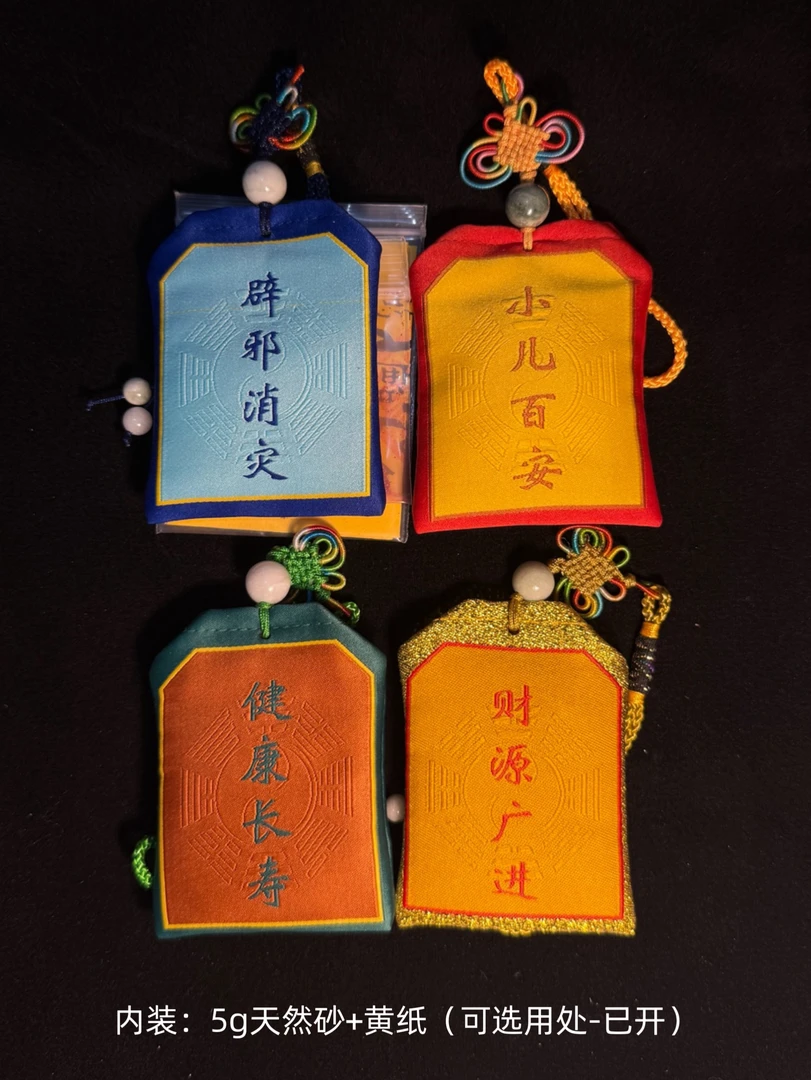 辟邪消灾
小儿百安
健康长寿
财源广进
内装：5g天然砂+黄纸（可选用处-已开）